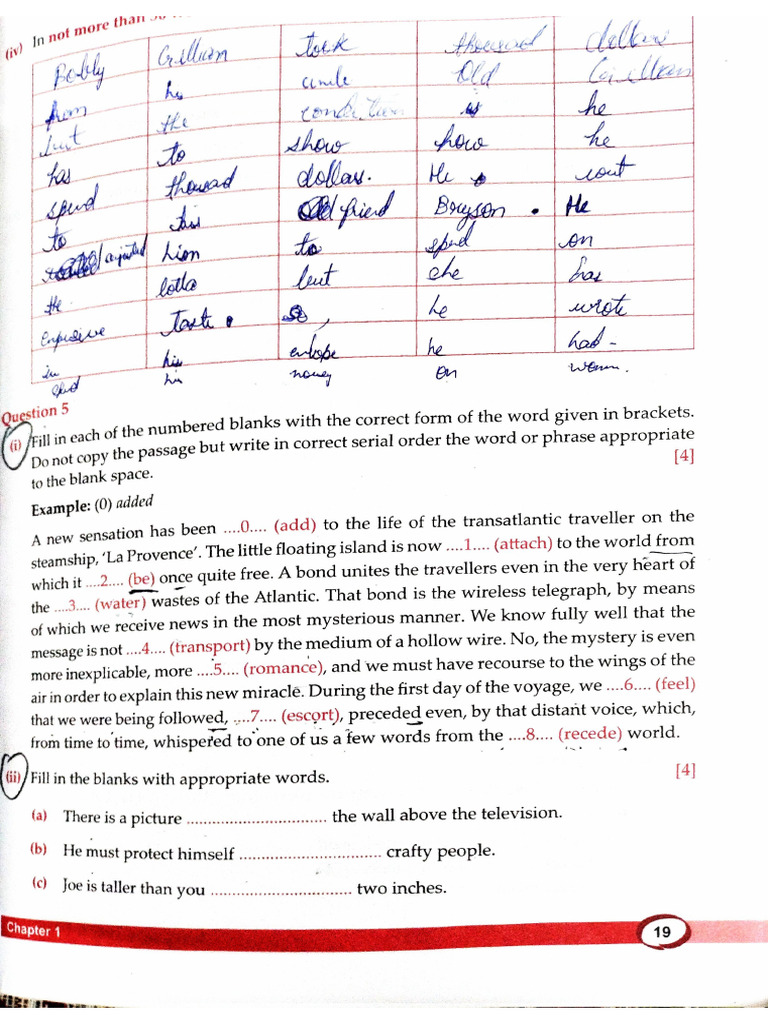 (iv) In not more than
Bobly Gillian took thousand dollars
from his uncle Old Gillian
but the condition is he
has to show how he
spend thousand dollars. He
to his Old friend Bryson. He
him to spend on
the but she has
Expensive Taste. so, he wrote
in his he had
spend his money on
Question 5
(i) Fill in each of the numbered blanks with the correct form of the word given in brackets.
Do not copy the passage but write in correct serial order the word or phrase appropriate
to the blank space. [4]
Example: (0) added
A new sensation has been ....0.... (add) to the life of the transatlantic traveller on the
steamship, 'La Provence'. The little floating island is now ....1.... (attach) to the world from
which it ....2.... (be) once quite free. A bond unites the travellers even in the very heart of
the ....3.... (water) wastes of the Atlantic. That bond is the wireless telegraph, by means
of which we receive news in the most mysterious manner. We know fully well that the
message is not ....4.... (transport) by the medium of a hollow wire. No, the mystery is even
more inexplicable, more ....5.... (romance), and we must have recourse to the wings of the
air in order to explain this new miracle. During the first day of the voyage, we ....6.... (feel)
that we were being followed, ....7.... (escort), preceded even, by that distant voice, which,
from time to time, whispered to one of us a few words from the ....8.... (recede) world.
(ii) Fill in the blanks with appropriate words. [4]
(a) There is a picture ................................ the wall above the television.
(b) He must protect himself ................................ crafty people.
(c) Joe is taller than you ................................ two inches.
Chapter 1
19